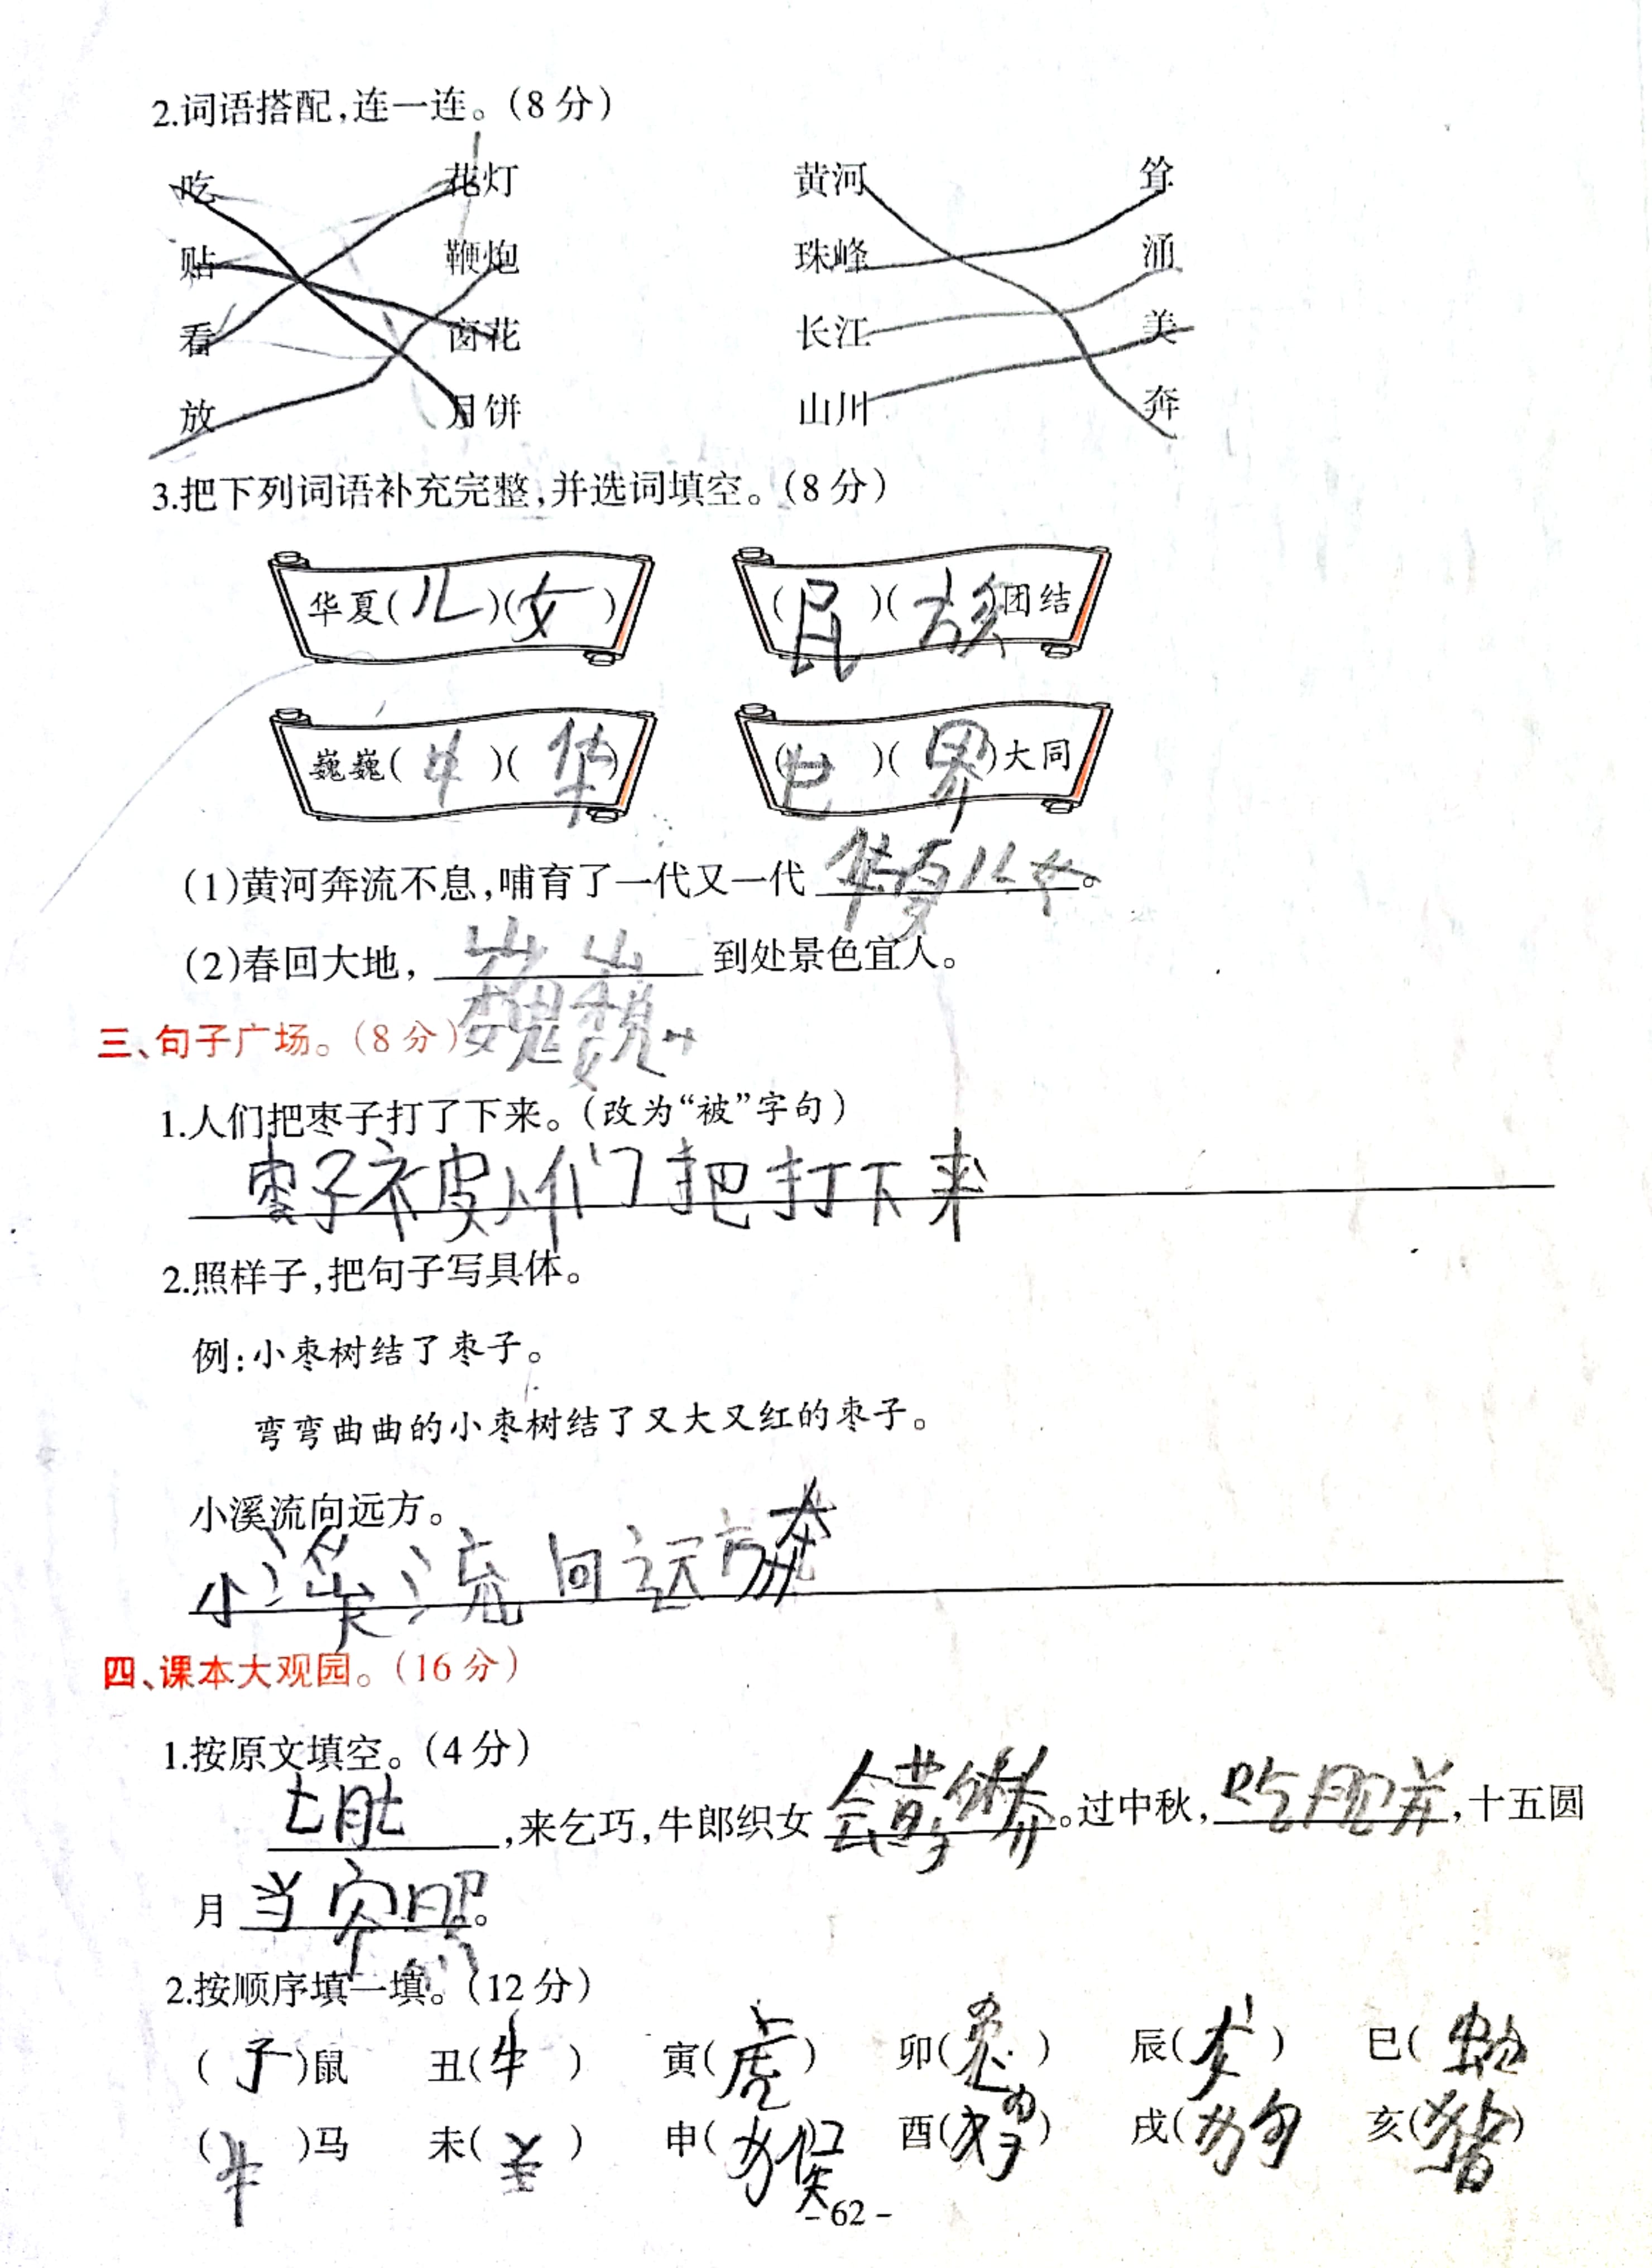 2.词语搭配,连一连。(8分)
吃 花灯 黄河 耸
贴 鞭炮 珠峰 涌
看 窗花 长江 美
放 月饼 山川 奔
3.把下列词语补充完整,并选词填空。(8分)
华夏(儿)(女) (民)(族)团结
巍巍( )(华) ( )(界)大同
(1)黄河奔流不息,哺育了一代又一代 华夏儿女。
(2)春回大地, 巍巍 到处景色宜人。
三、句子广场。(8分)
1.人们把枣子打了下来。(改为“被”字句)
枣子被人们把打下来
2.照样子,把句子写具体。
例:小枣树结了枣子。
弯弯曲曲的小枣树结了又大又红的枣子。
小溪流向远方。
小溪流向远方奔
四、课本大观园。(16分)
1.按原文填空。(4分)
七 ,来乞巧,牛郎织女 会 。过中秋, 吃月饼 ,十五圆
月 当 。
2.按顺序填一填。(12分)
(子)鼠 丑(牛) 寅(虎) 卯(兔) 辰( ) 巳(蛇)
( )马 未( ) 申(猴) 酉( ) 戌(狗) 亥(猪)
-62-